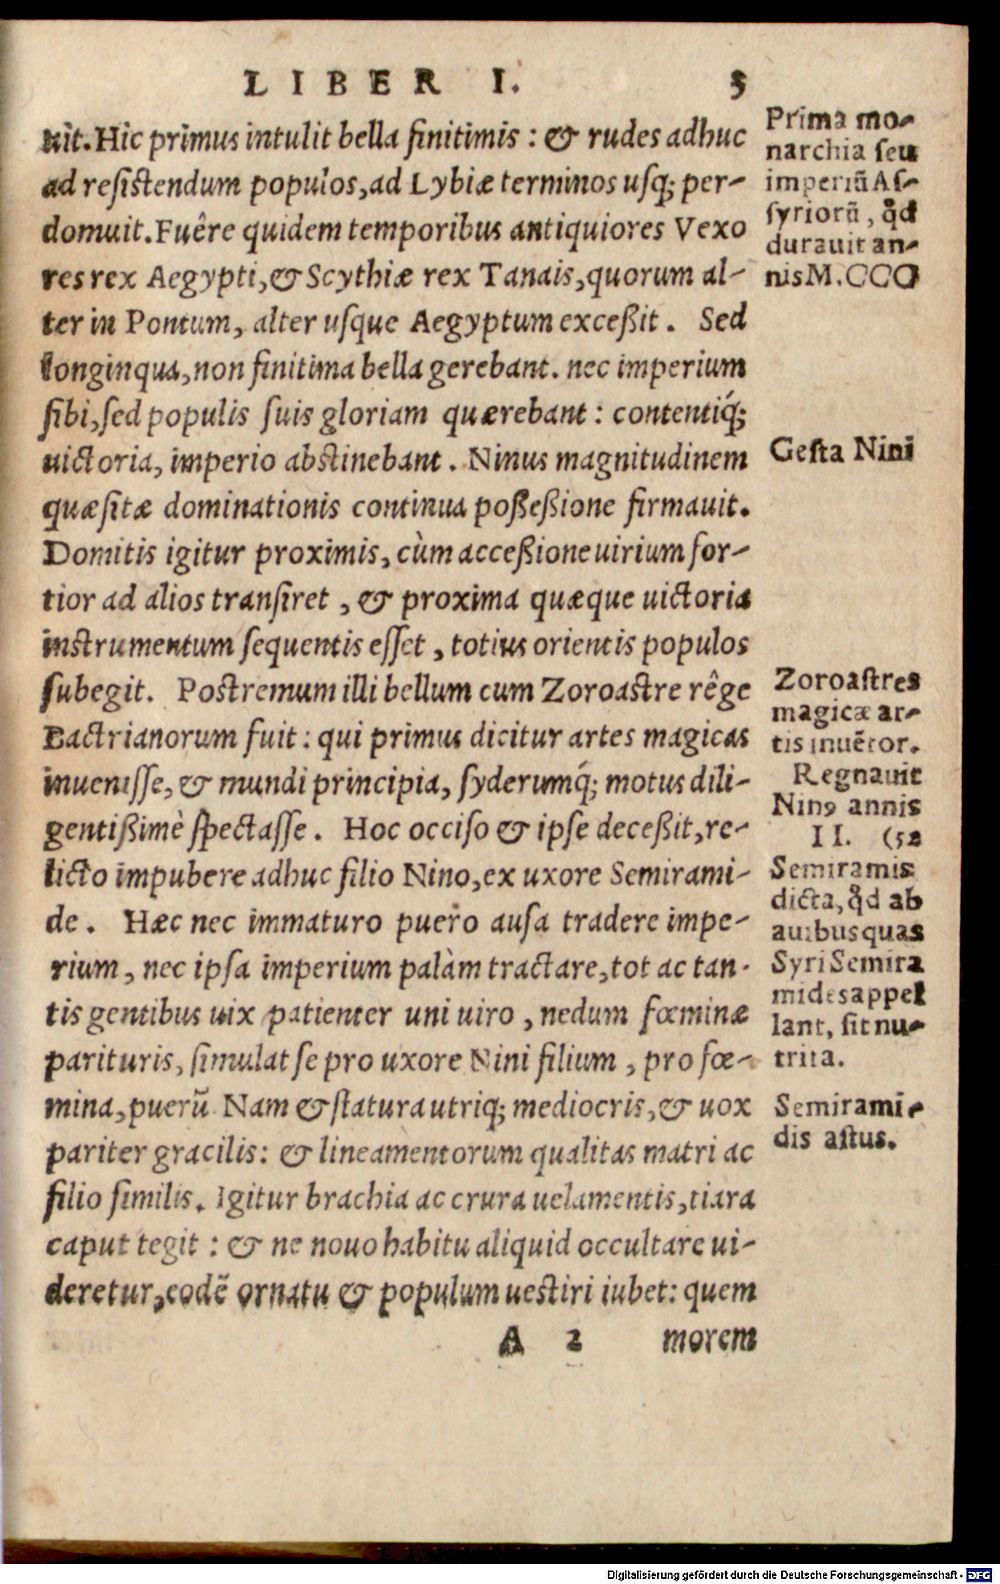 LIBER I. 5
uit. Hic primus intulit bella finitimis : & rudes adhuc
ad resistendum populos, ad Lybiæ terminos usq; per-
domuit. Fuêre quidem temporibus antiquiores Vexo
res rex Aegypti, & Scythiæ rex Tanais, quorum al-
ter in Pontum, alter usque Aegyptum exceßit. Sed
longinqua, non finitima bella gerebant. nec imperium
sibi, sed populis suis gloriam quærebant : contentiq́;
uictoria, imperio abstinebant. Ninus magnitudinem
quæsitæ dominationis continua poßeßione firmauit.
Domitis igitur proximis, cùm acceßione uirium for-
tior ad alios transiret, & proxima quæque uictoria
instrumentum sequentis esset, totius orientis populos
subegit. Postremum illi bellum cum Zoroastre rêge
Bactrianorum fuit : qui primus dicitur artes magicas
inuenisse, & mundi principia, syderumq́; motus dili-
gentißimè spectasse. Hoc occiso & ipse deceßit, re-
licto impubere adhuc filio Nino, ex uxore Semirami-
de. Hæc nec immaturo puero ausa tradere impe-
rium, nec ipsa imperium palàm tractare, tot ac tan-
tis gentibus uix patienter uni uiro, nedum fœminæ
parituris, simulat se pro uxore Nini filium, pro fœ-
mina, puerũ. Nam & statura utriq; mediocris, & uox
pariter gracilis: & lineamentorum qualitas matri ac
filio similis. Igitur brachia ac crura uelamentis, tiara
caput tegit : & ne nouo habitu aliquid occultare ui-
deretur, eodẽ ornatu & populum uestiri iubet: quem
A 2 morem
Prima mo-
narchia seu
imperiũ As-
syriorũ, qd
durauit an-
nis M.CCC
Gesta Nini
Zoroastres
magicæ ar-
tis inuẽtor.
Regnauit
Ninꝰ annis
II. (52
Semiramis
dicta, qd ab
auibus quas
Syri Semira
mides appel
lant, sit nu-
trita.
Semirami-
dis astus.
Digitalisierung gefördert durch die Deutsche Forschungsgemeinschaft - DFG